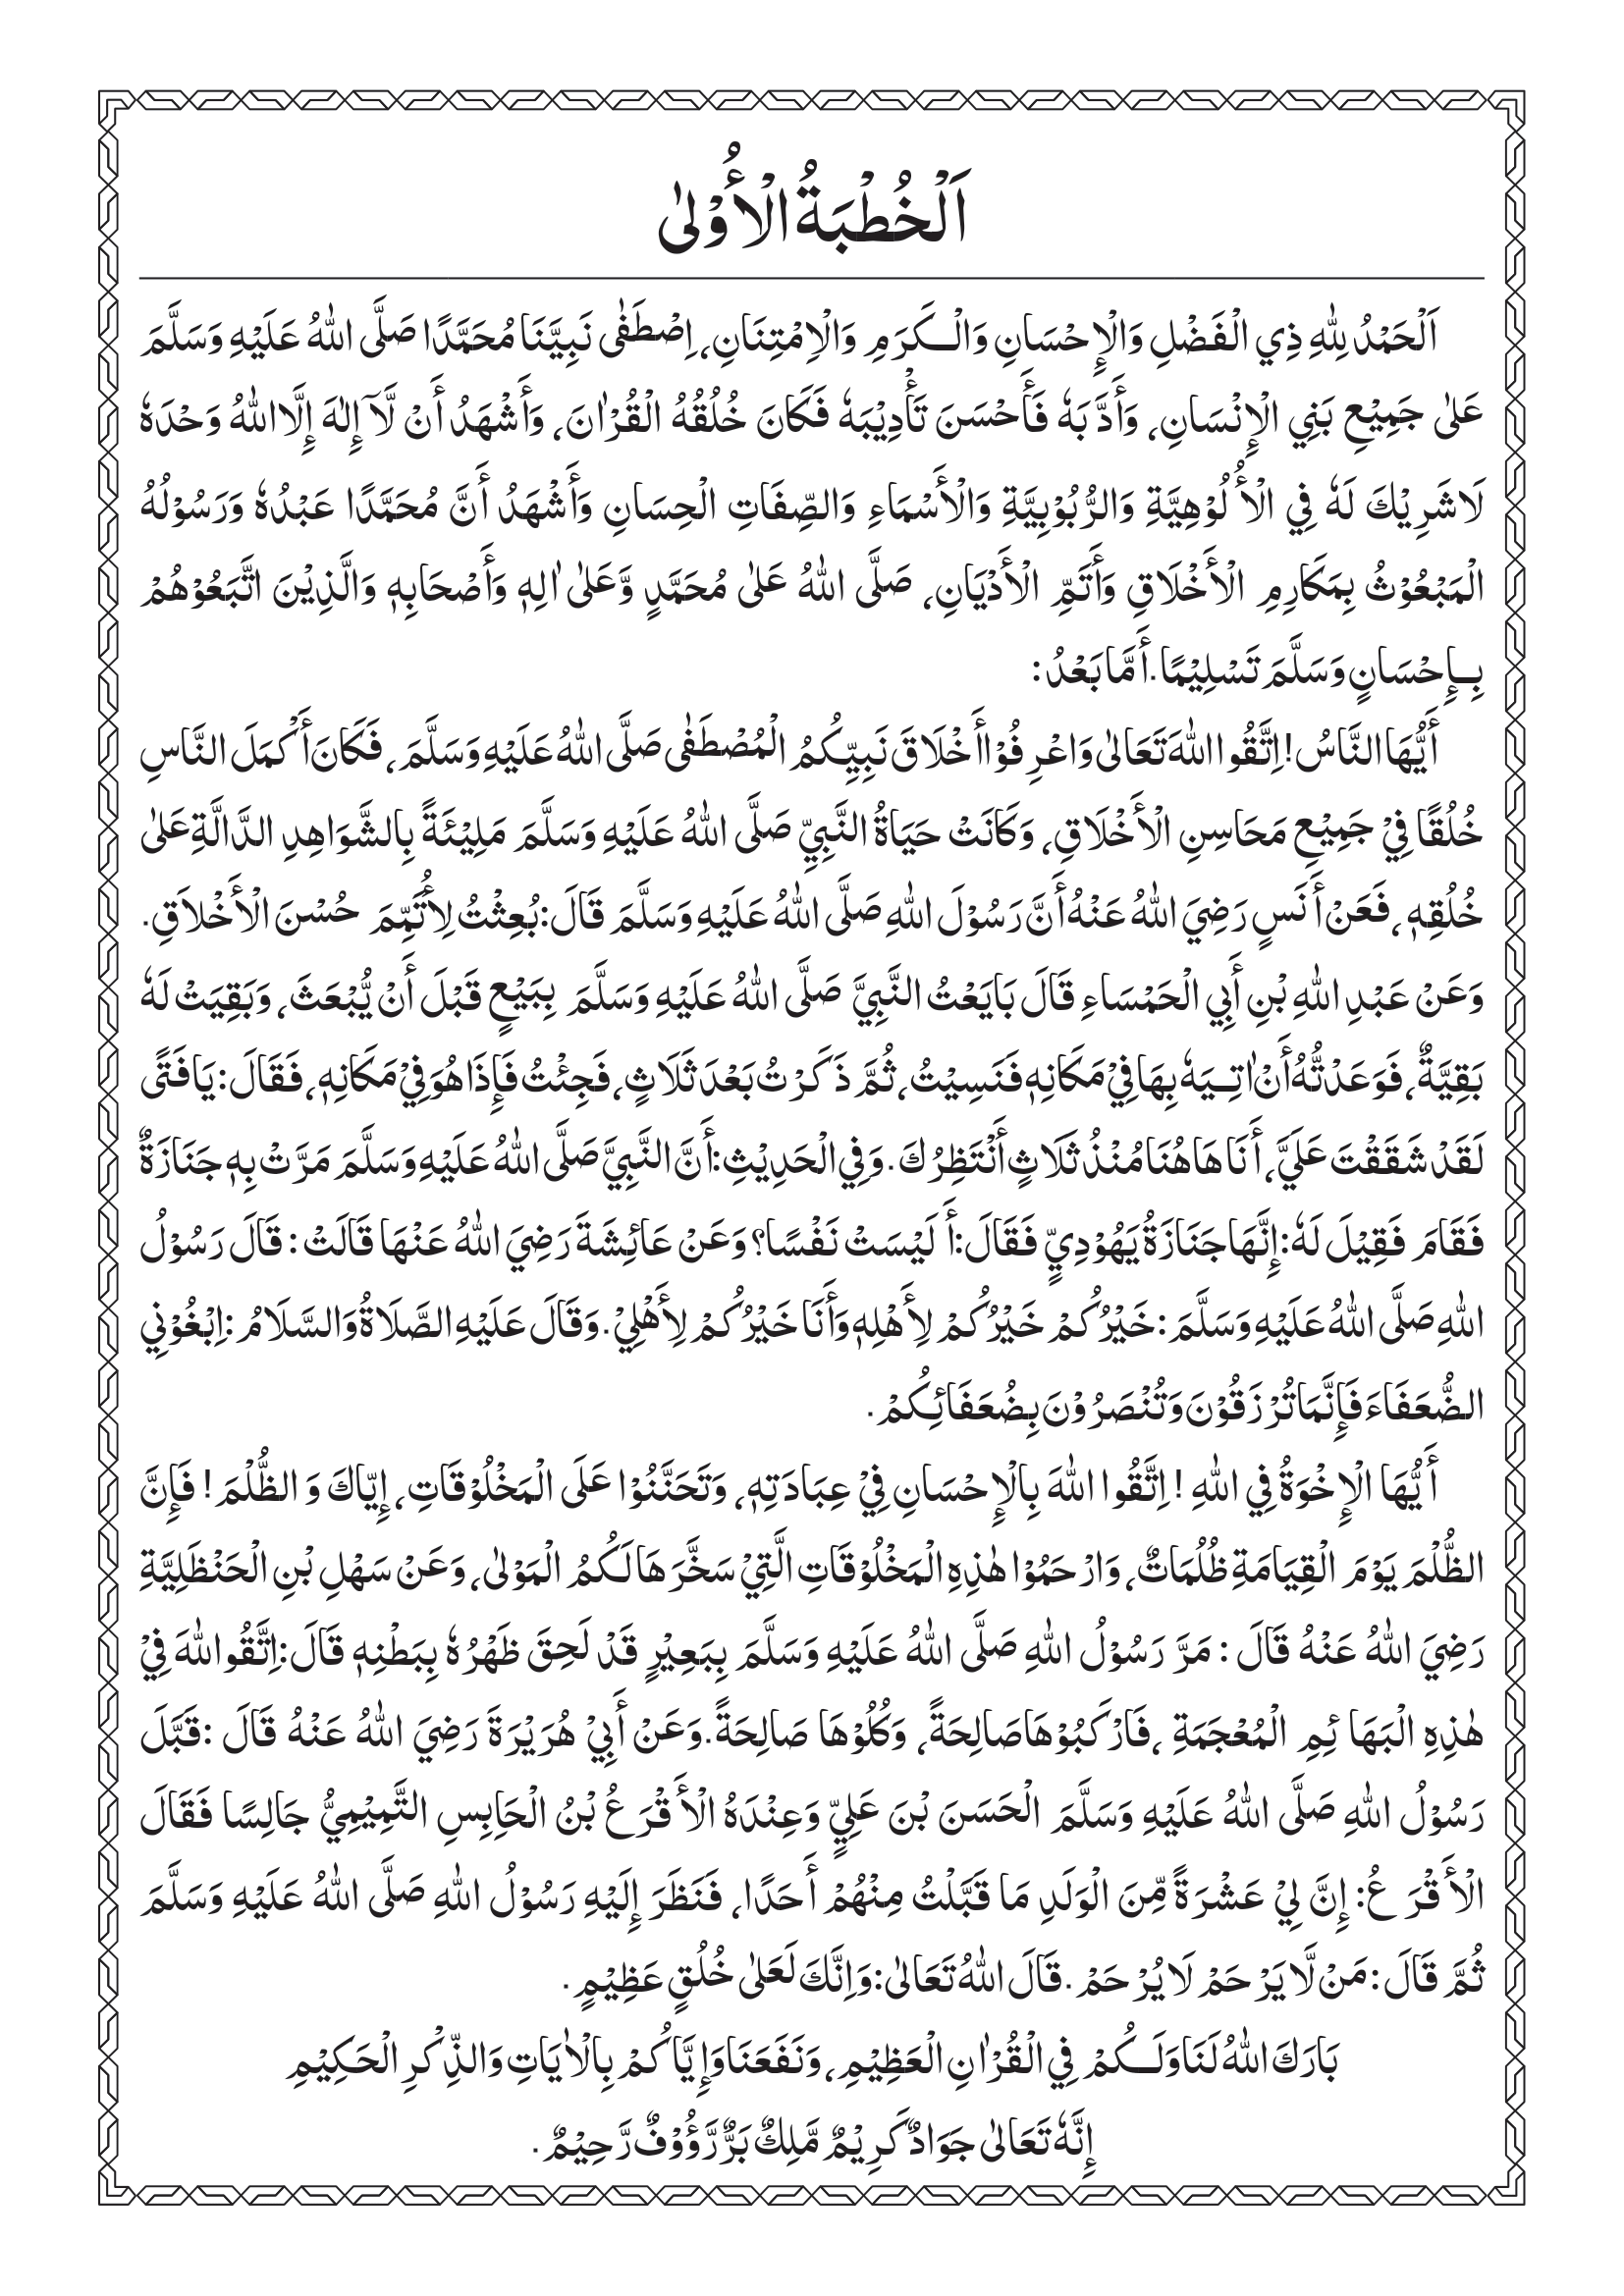 اَلْخُطْبَةُ الْأُوْلىٰ
اَلْحَمْدُ لِلّٰهِ ذِي الْفَضْلِ وَالْإِحْسَانِ وَالْكَرَمِ وَالْاِمْتِنَانِ، اِصْطَفٰى نَبِيَّنَا مُحَمَّدًا صَلَّى اللّٰهُ عَلَيْهِ وَسَلَّمَ
عَلىٰ جَمِيْعِ بَنِي الْإِنْسَانِ، وَأَدَّبَهٗ فَأَحْسَنَ تَأْدِيْبَهٗ فَكَانَ خُلُقُهُ الْقُرْاٰنَ، وَأَشْهَدُ أَنْ لَّآ إِلٰهَ إِلَّا اللّٰهُ وَحْدَهٗ
لَا شَرِيْكَ لَهٗ فِي الْأُلُوْهِيَّةِ وَالرُّبُوْبِيَّةِ وَالْأَسْمَاءِ وَالصِّفَاتِ الْحِسَانِ وَأَشْهَدُ أَنَّ مُحَمَّدًا عَبْدُهٗ وَرَسُوْلُهُ
الْمَبْعُوْثُ بِمَكَارِمِ الْأَخْلَاقِ وَأَتَمِّ الْأَدْيَانِ، صَلَّى اللّٰهُ عَلىٰ مُحَمَّدٍ وَّعَلىٰ اٰلِهٖ وَأَصْحَابِهٖ وَالَّذِيْنَ اتَّبَعُوْهُمْ
بِإِحْسَانٍ وَسَلَّمَ تَسْلِيْمًا. أَمَّا بَعْدُ:
أَيُّهَا النَّاسُ! اِتَّقُوا اللّٰهَ تَعَالىٰ وَاعْرِفُوْا أَخْلَاقَ نَبِيِّكُمُ الْمُصْطَفٰى صَلَّى اللّٰهُ عَلَيْهِ وَسَلَّمَ، فَكَانَ أَكْمَلَ النَّاسِ
خُلُقًا فِيْ جَمِيْعِ مَحَاسِنِ الْأَخْلَاقِ، وَكَانَتْ حَيَاةُ النَّبِيِّ صَلَّى اللّٰهُ عَلَيْهِ وَسَلَّمَ مَلِيْئَةً بِالشَّوَاهِدِ الدَّالَّةِ عَلىٰ
خُلُقِهٖ، فَعَنْ أَنَسٍ رَضِيَ اللّٰهُ عَنْهُ أَنَّ رَسُوْلَ اللّٰهِ صَلَّى اللّٰهُ عَلَيْهِ وَسَلَّمَ قَالَ: بُعِثْتُ لِأُتَمِّمَ حُسْنَ الْأَخْلَاقِ.
وَعَنْ عَبْدِ اللّٰهِ بْنِ أَبِي الْحَمْسَاءِ قَالَ بَايَعْتُ النَّبِيَّ صَلَّى اللّٰهُ عَلَيْهِ وَسَلَّمَ بِبَيْعٍ قَبْلَ أَنْ يُّبْعَثَ، وَبَقِيَتْ لَهٗ
بَقِيَّةٌ، فَوَعَدْتُّهُ أَنْ اٰتِيَهٗ بِهَا فِيْ مَكَانِهٖ فَنَسِيْتُ، ثُمَّ ذَكَرْتُ بَعْدَ ثَلَاثٍ، فَجِئْتُ فَإِذَا هُوَ فِيْ مَكَانِهٖ، فَقَالَ: يَا فَتًى
لَقَدْ شَقَقْتَ عَلَيَّ، أَنَا هَاهُنَا مُنْذُ ثَلَاثٍ أَنْتَظِرُكَ. وَفِي الْحَدِيْثِ: أَنَّ النَّبِيَّ صَلَّى اللّٰهُ عَلَيْهِ وَسَلَّمَ مَرَّتْ بِهٖ جَنَازَةٌ
فَقَامَ فَقِيْلَ لَهٗ: إِنَّهَا جَنَازَةُ يَهُوْدِيٍّ فَقَالَ: أَلَيْسَتْ نَفْسًا؟ وَعَنْ عَائِشَةَ رَضِيَ اللّٰهُ عَنْهَا قَالَتْ: قَالَ رَسُوْلُ
اللّٰهِ صَلَّى اللّٰهُ عَلَيْهِ وَسَلَّمَ: خَيْرُكُمْ خَيْرُكُمْ لِأَهْلِهٖ وَأَنَا خَيْرُكُمْ لِأَهْلِيْ. وَقَالَ عَلَيْهِ الصَّلَاةُ وَالسَّلَامُ: اِبْغُوْنِي
الضُّعَفَاءَ فَإِنَّمَا تُرْزَقُوْنَ وَتُنْصَرُوْنَ بِضُعَفَائِكُمْ.
أَيُّهَا الْإِخْوَةُ فِي اللّٰهِ! اِتَّقُوا اللّٰهَ بِالْإِحْسَانِ فِيْ عِبَادَتِهٖ، وَتَحَنَّنُوْا عَلَى الْمَخْلُوْقَاتِ، إِيَّاكَ وَ الظُّلْمَ! فَإِنَّ
الظُّلْمَ يَوْمَ الْقِيَامَةِ ظُلُمَاتٌ، وَارْحَمُوْا هٰذِهِ الْمَخْلُوْقَاتِ الَّتِيْ سَخَّرَهَا لَكُمُ الْمَوْلىٰ، وَعَنْ سَهْلِ بْنِ الْحَنْظَلِيَّةِ
رَضِيَ اللّٰهُ عَنْهُ قَالَ: مَرَّ رَسُوْلُ اللّٰهِ صَلَّى اللّٰهُ عَلَيْهِ وَسَلَّمَ بِبَعِيْرٍ قَدْ لَحِقَ ظَهْرُهٗ بِبَطْنِهٖ قَالَ: اِتَّقُوا اللّٰهَ فِيْ
هٰذِهِ الْبَهَائِمِ الْمُعْجَمَةِ، فَارْكَبُوْهَا صَالِحَةً، وَكُلُوْهَا صَالِحَةً. وَعَنْ أَبِيْ هُرَيْرَةَ رَضِيَ اللّٰهُ عَنْهُ قَالَ: قَبَّلَ
رَسُوْلُ اللّٰهِ صَلَّى اللّٰهُ عَلَيْهِ وَسَلَّمَ الْحَسَنَ بْنَ عَلِيٍّ وَعِنْدَهُ الْأَقْرَعُ بْنُ الْحَابِسِ التَّمِيْمِيُّ جَالِسًا فَقَالَ
الْأَقْرَعُ: إِنَّ لِيْ عَشْرَةً مِّنَ الْوَلَدِ مَا قَبَّلْتُ مِنْهُمْ أَحَدًا، فَنَظَرَ إِلَيْهِ رَسُوْلُ اللّٰهِ صَلَّى اللّٰهُ عَلَيْهِ وَسَلَّمَ
ثُمَّ قَالَ: مَنْ لَّا يَرْحَمْ لَا يُرْحَمْ. قَالَ اللّٰهُ تَعَالىٰ: وَاِنَّكَ لَعَلىٰ خُلُقٍ عَظِيْمٍ.
بَارَكَ اللّٰهُ لَنَا وَلَكُمْ فِي الْقُرْاٰنِ الْعَظِيْمِ، وَنَفَعَنَا وَإِيَّاكُمْ بِالْاٰيَاتِ وَالذِّكْرِ الْحَكِيْمِ
إِنَّهٗ تَعَالىٰ جَوَادٌ كَرِيْمٌ مَّلِكٌ بَرٌّ رَّؤُوْفٌ رَّحِيْمٌ.